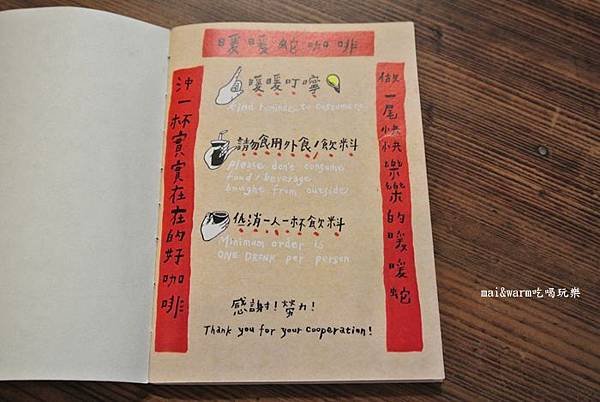 暖暖蛇咖啡
做一尾快快樂樂的暖暖蛇
沖一杯實實在在的好咖啡
暖暖叮嚀
Kind reminder to customers
請勿食用外食/飲料
Please don't consume
food/beverage
bought from outside
低消一人一杯飲料
Minimum order is
ONE DRINK per person
感謝!勞力!
Thank you for your cooperation!
mai&warm吃喝玩樂